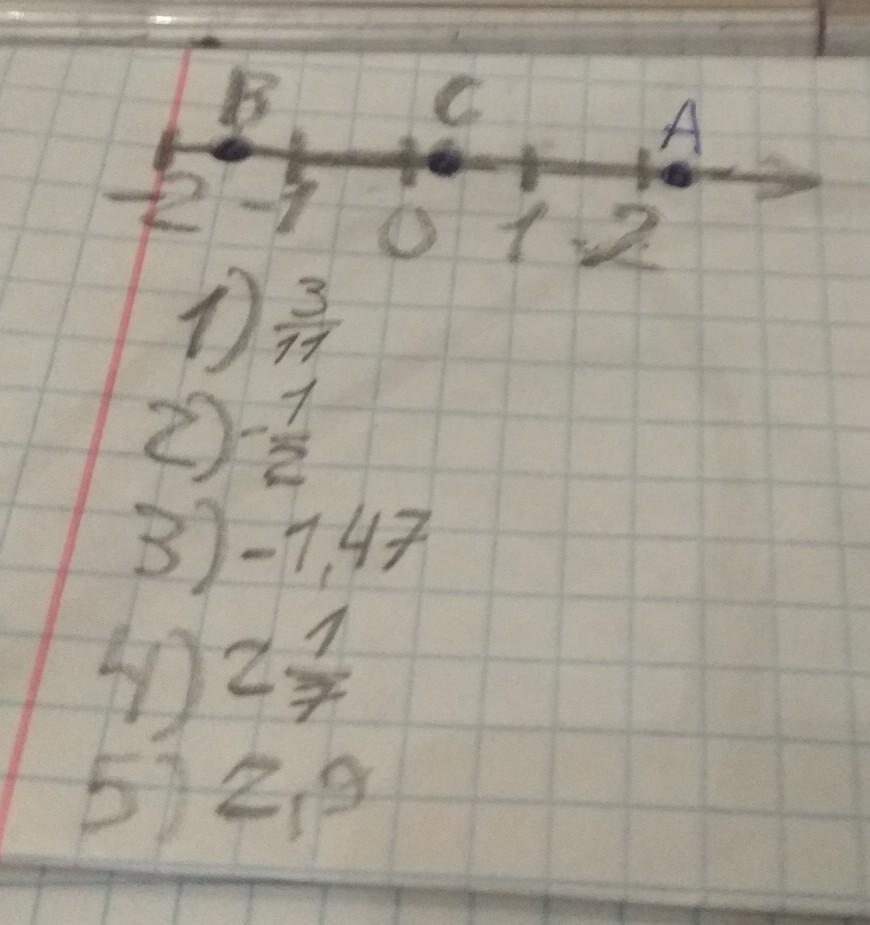 B C A
-2 -1 0 1 2
1) 3/11
2) -1/2
3) -1,47
4) 2 1/7
5) 2,9